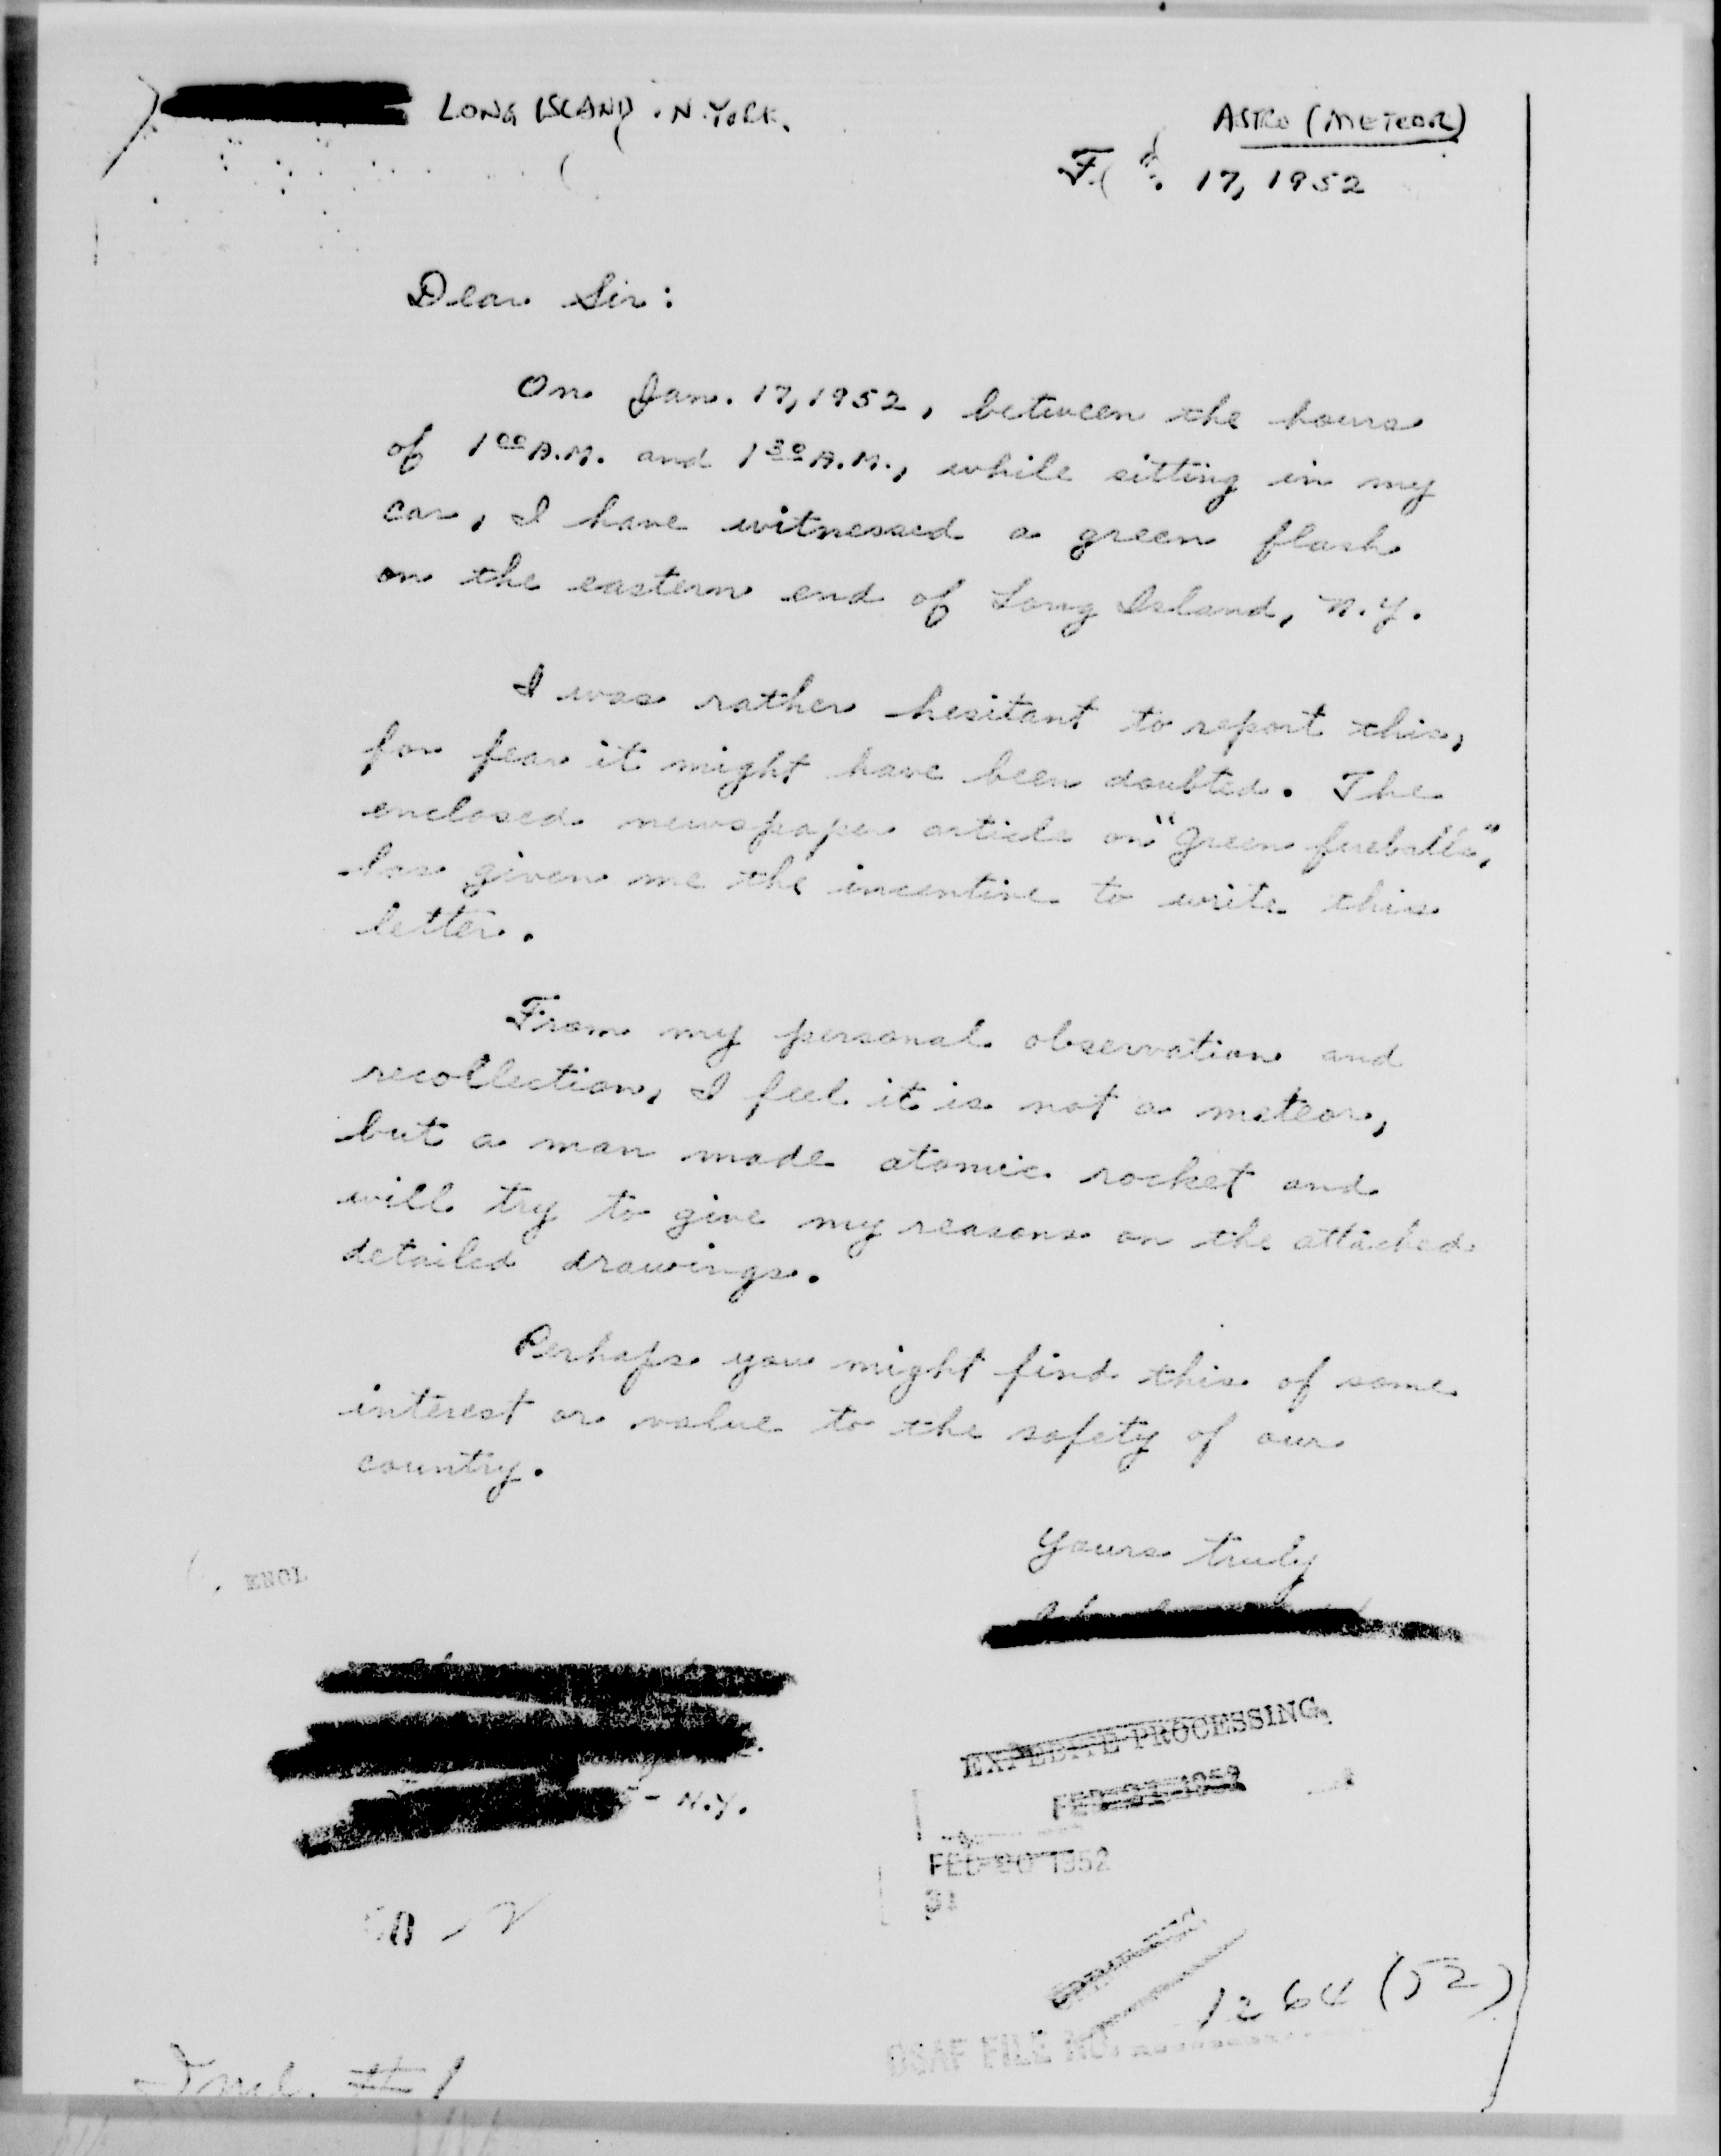 LONG ISLAND. N. YORK.
ASTRO (METEOR)
17, 1952
Dear Sir:
On Jan. 17, 1952, between the hours
of 1 00 A.M. and 1 30 A.M., while sitting in my
car, I have witnessed a green flash
on the eastern end of Long Island, N.Y.
I was rather hesitant to report this,
for fear it might have been doubted. The
enclosed newspaper article on "green fireballs",
has given me the incentive to write this
letter.
From my personal observation and
recollection, I feel it is not a meteor,
but a man made atomic rocket and
will try to give my reasons on the attached
detailed drawings.
Perhaps you might find this of some
interest or value to the safety of our
country.
Yours truly
ENCL
EXPEDITE PROCESSING
FEB 21 1952
- N.Y.
FEB 20 1952
1264 (52)
OSAF FILE NO.
Incl. #1